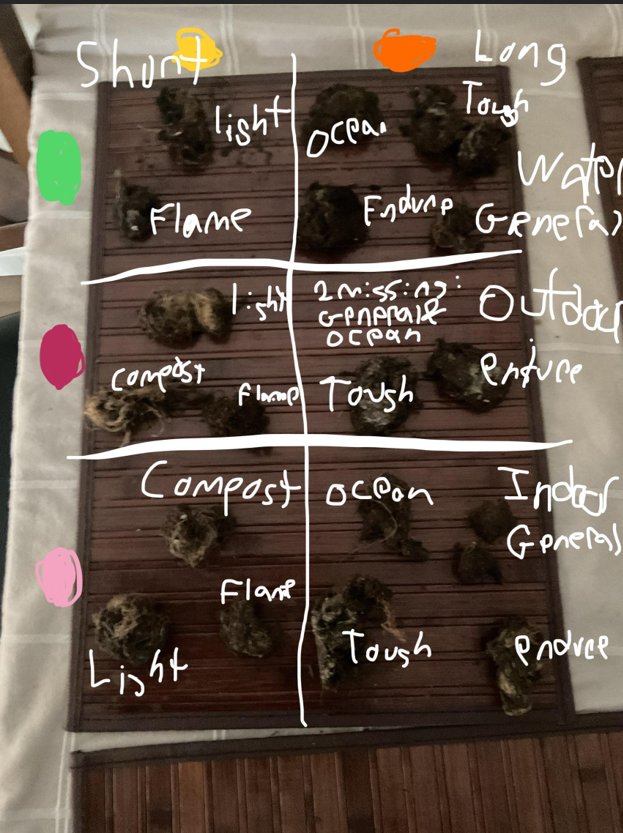 Shunt
Long
light
Ocean
Tough
Water
Flame
Endure
General
light
2 missing:
General &
Ocean
Outdoor
Compost
Flame
Tough
endure
Compost
Ocean
Indoor
General
Flame
Light
Tough
endure